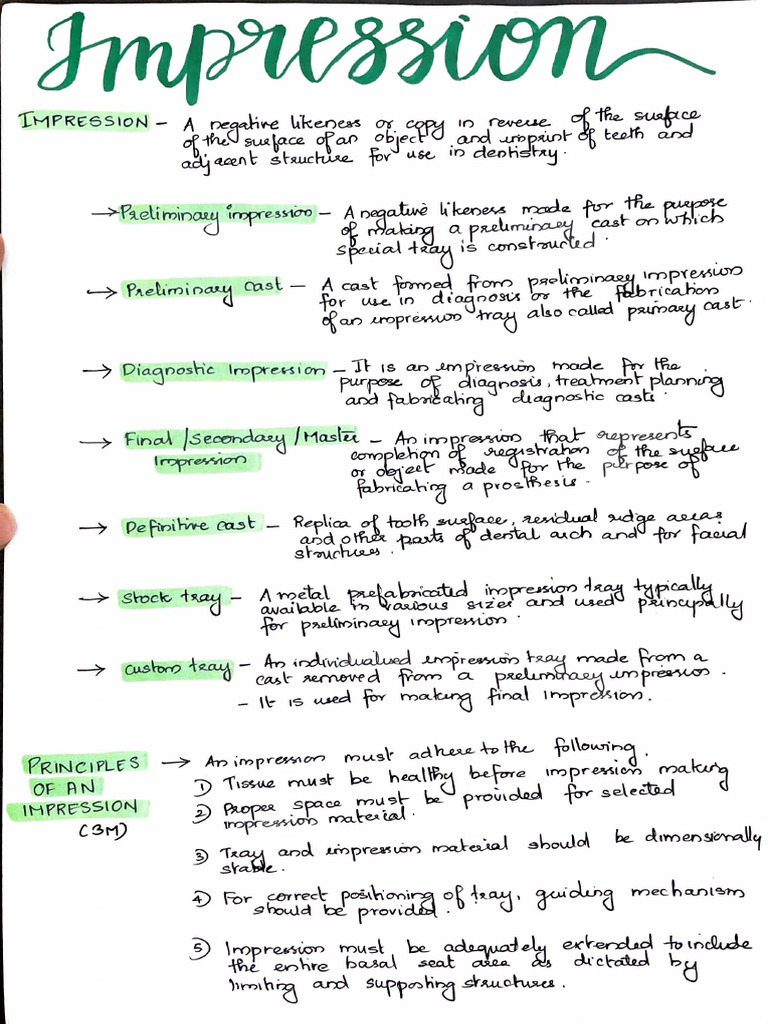 Impression
IMPRESSION - A negative likeness or copy in reverse of the surface
of the surface of an object and imprint of teeth and
adjacent structure for use in dentistry.
→ Preliminary impression - A negative likeness made for the purpose
of making a preliminary cast on which
special tray is constructed.
→ Preliminary cast - A cast formed from preliminary impression
for use in diagnosis or the fabrication
of an impression tray also called primary cast.
→ Diagnostic Impression - It is an impression made for the
purpose of diagnosis, treatment planning
and fabricating diagnostic casts.
→ Final /Secondary /Master - An impression that represents
Impression completion of registration of the surface
or object made for the purpose of
fabricating a prosthesis.
→ Definitive cast - Replica of tooth surface, residual ridge areas
and other parts of dental arch and for facial
structures.
→ Stock tray - A metal prefabricated impression tray typically
available in various sizes and used principally
for preliminary impression.
→ Custom tray - An individualued impression tray made from a
cast removed from a preliminary impression.
- It is used for making final impression.
PRINCIPLES → An impression must adhere to the following.
OF AN 1) Tissue must be healthy before impression making
IMPRESSION 2) Proper space must be provided for selected
(3M) impression material.
3) Tray and impression material should be dimensionally
stable.
4) For correct positioning of tray, guiding mechanism
should be provided.
5) Impression must be adequately extended to include
the entire basal seat area as dictated by
limiting and supporting structures.